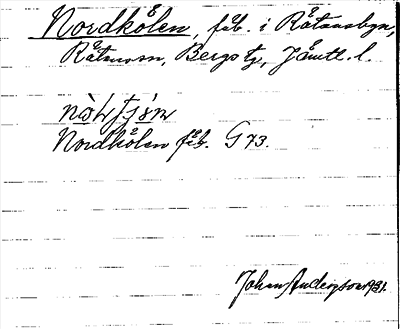 Nordkölen, fäb. i Råtansbyn,
Råtans sn, Bergs tg, Jämtl. l.
Nordkölen fäb. G 73.
Johan Anderson 1931.